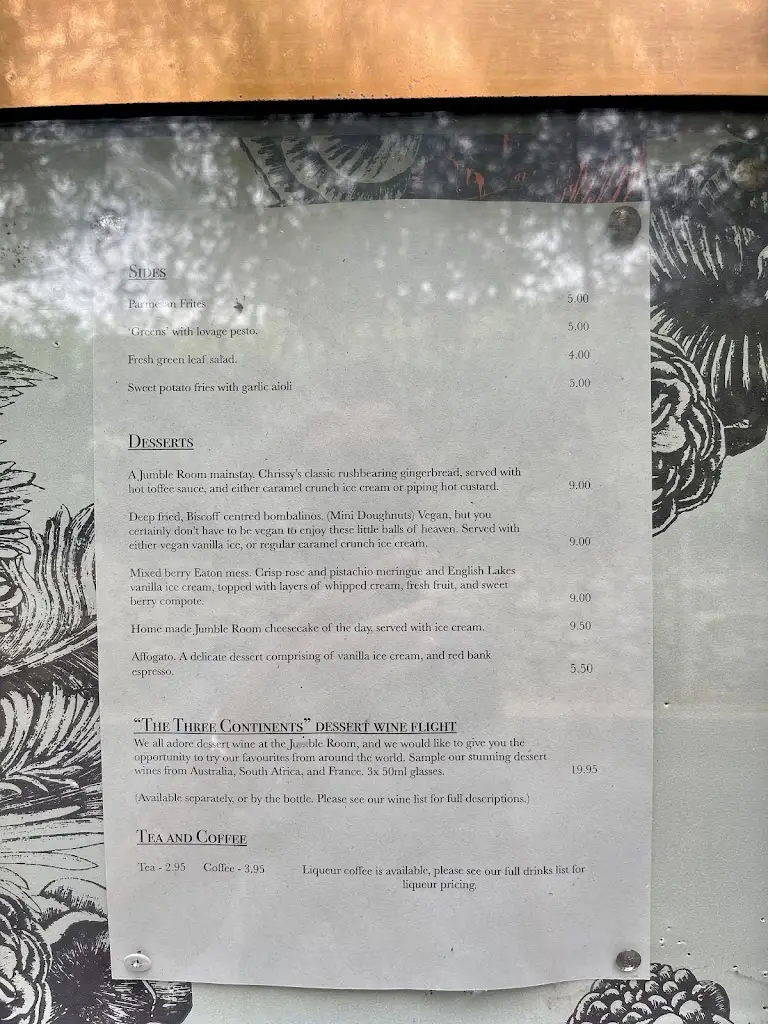 SIDES
Parmesan Frites 5.00
'Greens' with lovage pesto. 5.00
Fresh green leaf salad. 4.00
Sweet potato fries with garlic aioli 5.00
DESSERTS
A Jumble Room mainstay. Chrissy's classic rushbearing gingerbread, served with
hot toffee sauce, and either caramel crunch ice cream or piping hot custard. 9.00
Deep fried, Biscoff centred bombalinos. (Mini Doughnuts) Vegan, but you
certainly don't have to be vegan to enjoy these little balls of heaven. Served with
either vegan vanilla ice, or regular caramel crunch ice cream. 9.00
Mixed berry Eaton mess. Crisp rose and pistachio meringue and English Lakes
vanilla ice cream, topped with layers of whipped cream, fresh fruit, and sweet
berry compote. 9.00
Home made Jumble Room cheesecake of the day, served with ice cream. 9.50
Affogato. A delicate dessert comprising of vanilla ice cream, and red bank
espresso. 5.50
"THE THREE CONTINENTS" DESSERT WINE FLIGHT
We all adore dessert wine at the Jumble Room, and we would like to give you the
opportunity to try our favourites from around the world. Sample our stunning dessert
wines from Australia, South Africa, and France. 3x 50ml glasses. 19.95
(Available separately, or by the bottle. Please see our wine list for full descriptions.)
TEA AND COFFEE
Tea - 2.95 Coffee - 3.95 Liqueur coffee is available, please see our full drinks list for
liqueur pricing.